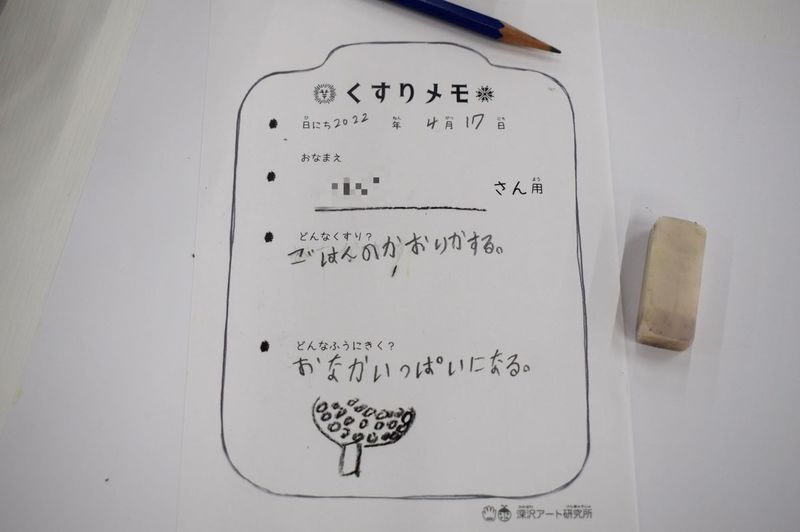 くすりメモ
日にち2022年 4月17日
おなまえ
さん用
どんなくすり？
ごはんのかおりかする。
どんなふうにきく？
おなかいっぱいになる。
深沢アート研究所